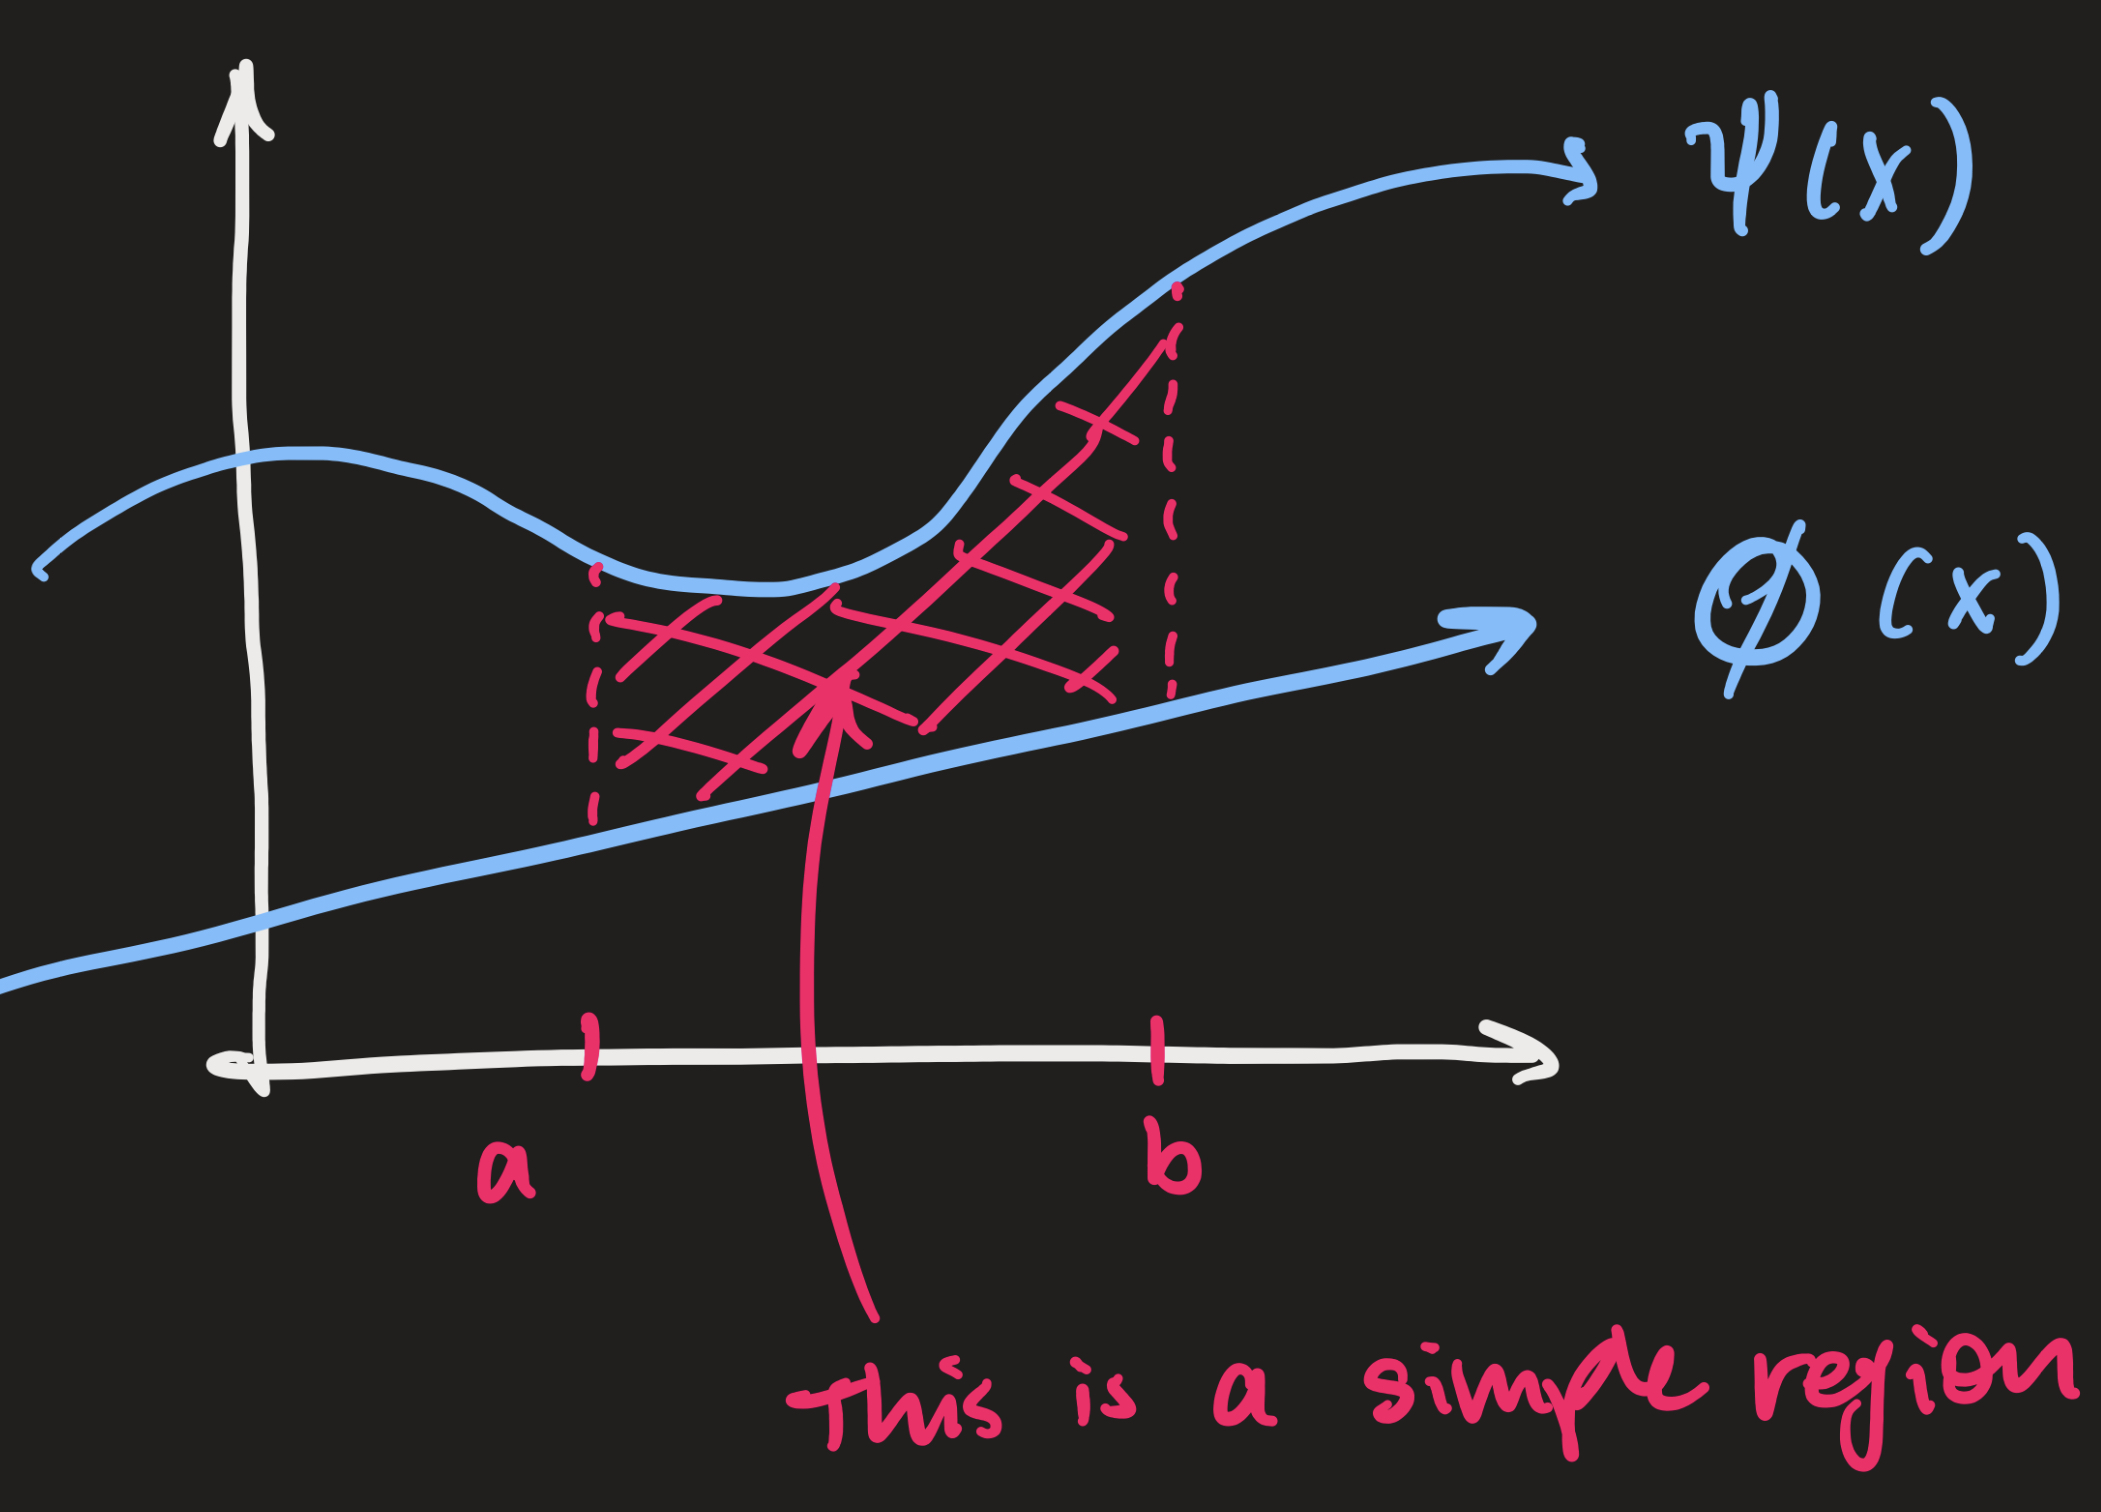 Ψ(x)
Ø(x)
a
b
This is a simple region